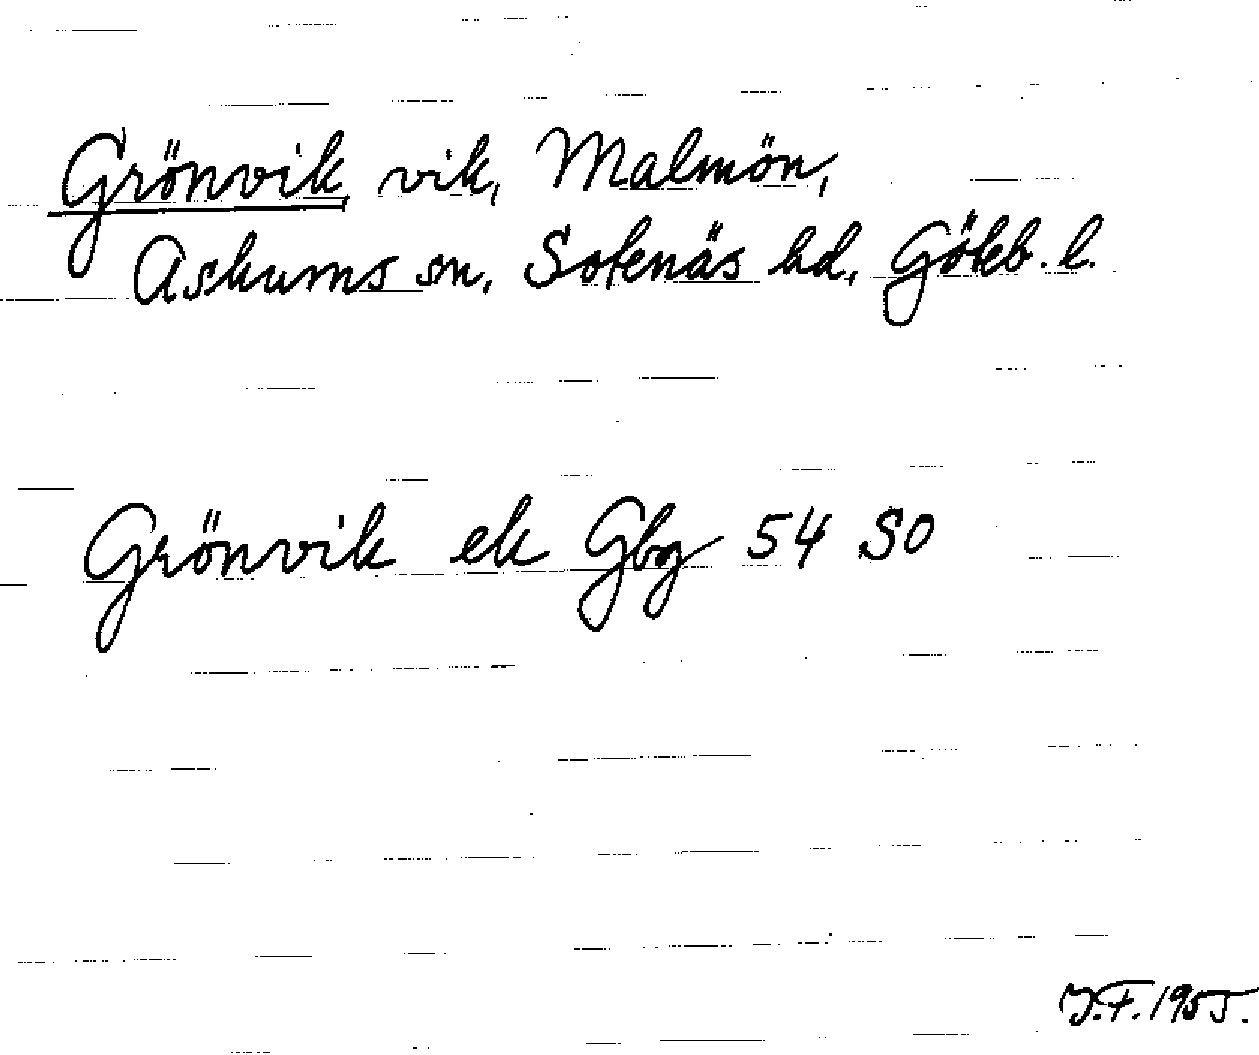 Grönvik, vik, Malmön,
Askums sn, Sotenäs hd, Göteb. l.
Grönvik ek Gbg 54 SO
J.F. 1955.